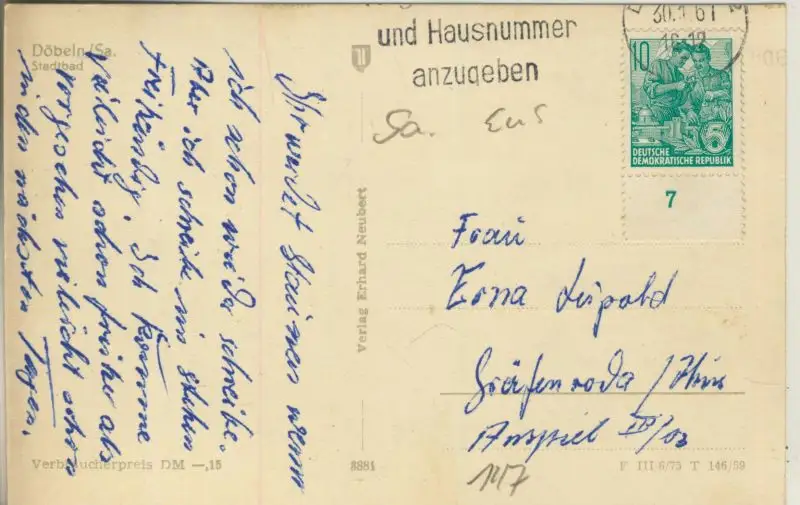 Döbeln/Sa.
Stadtbad
und Hausnummer
anzugeben
30.1.61
10
DEUTSCHE
DEMOKRATISCHE REPUBLIK
7
Sa.
Ihr werdet staunen wenn
ich schon wieder schreibe.
Aber ich schreibe im
Freihändig. Ich komme
vieleicht schon früher als
vorgesehen vieleicht schon
in den nächsten Tagen.
Verlag Erhard Neubert
Frau
Erna Leipold
Gräfenroda / Thür
147
Verbraucherpreis DM —,15
8881
F III 6/75 T 146/59